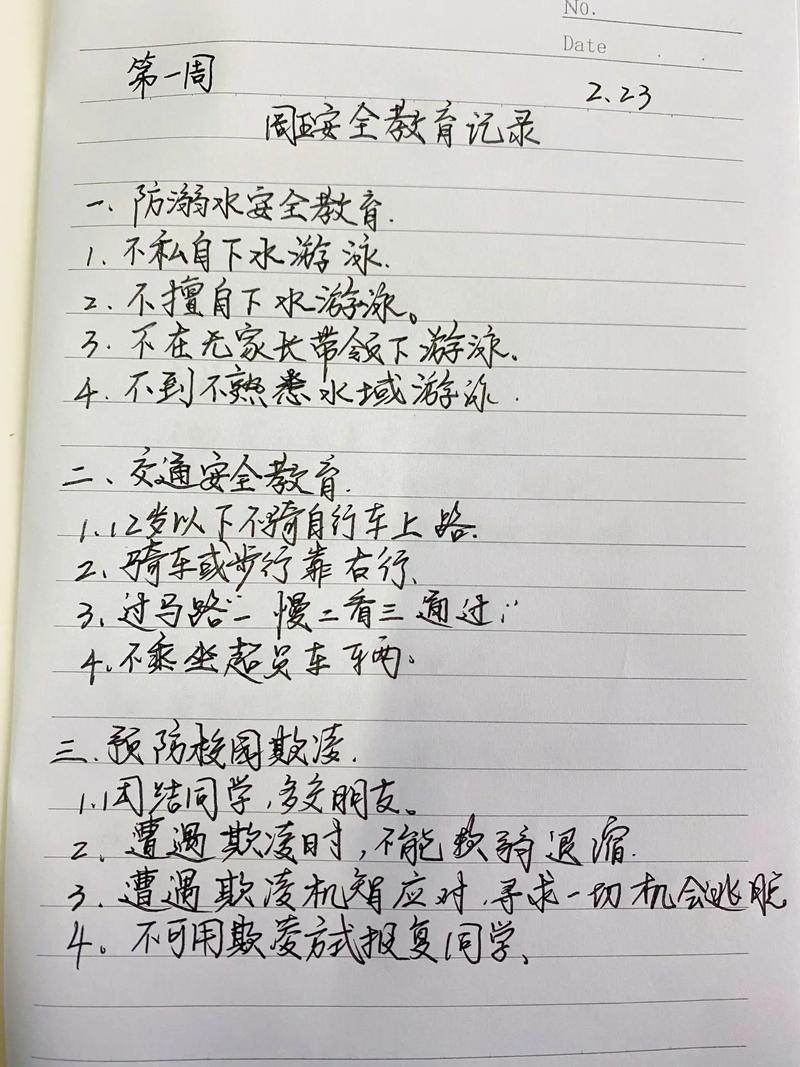 No.
Date
第一周
2.23
周五安全教育记录
一、防溺水安全教育.
1. 不私自下水游泳.
2. 不擅自下水游泳。
3. 不在无家长带领下游泳.
4. 不到不熟悉水域游泳.
二、交通安全教育.
1.12岁以下不骑自行车上路.
2、骑车或步行靠右行、
3、过马路"一慢二看三通过"
4.不乘坐超员车车辆。
三.预防校园欺凌.
1.团结同学,多交朋友。
2、遭遇欺凌时,不能软弱退缩.
3、遭遇欺凌机智应对、寻求一切机会逃脱
4。不可用欺凌方式报复同学、